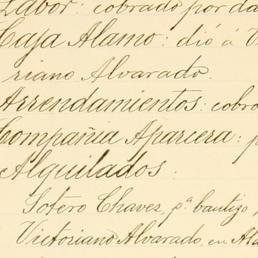 Labor: cobrado por da
Caja Alamo: dió á V
riano Alvarado.
Arrendamientos: cobro
Compañia Aparcera: p
Alquilados:
Sotero Chavez, pª bautizo,
Victoriano Alvarado, en Ala